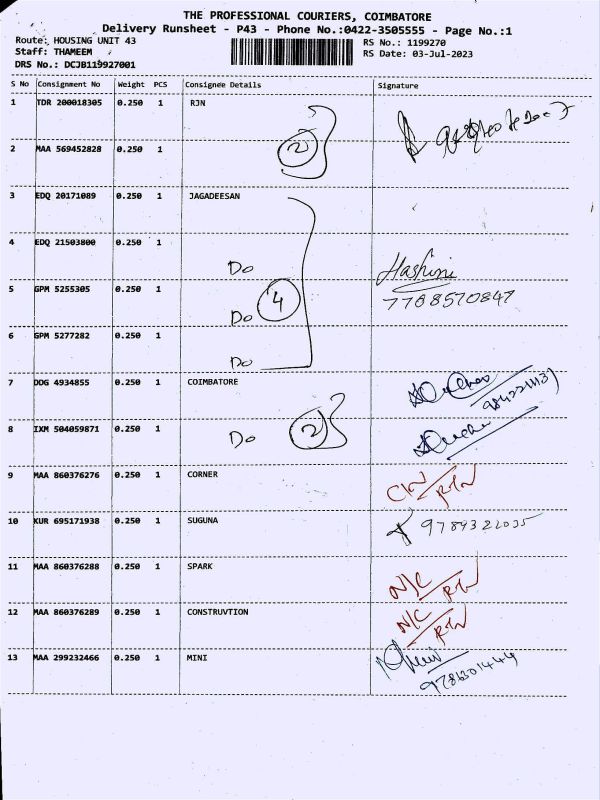 THE PROFESSIONAL COURIERS, COIMBATORE
Delivery Runsheet - P43 - Phone No.:0422-3505555 - Page No.:1
Route: HOUSING UNIT 43 RS No.: 1199270
Staff: THAMEEM RS Date: 03-Jul-2023
DRS No.: DCJB119927001
S No Consignment No Weight PCS Consignee Details Signature
1 TDR 200018305 0.250 1 RJN
2 MAA 569452828 0.250 1 2
3 EDQ 20171089 0.250 1 JAGADEESAN
4 EDQ 21503800 0.250 1 Do Hashini
5 GPM 5255305 0.250 1 Do 4 7708570847
6 GPM 5277282 0.250 1 Do
7 DDG 4934855 0.250 1 COIMBATORE
8 IXM 504059871 0.250 1 Do 2
9 MAA 860376276 0.250 1 CORNER RTN
10 KUR 695171938 0.250 1 SUGUNA 9789322035
11 MAA 860376288 0.250 1 SPARK N/C RTN
12 MAA 860376289 0.250 1 CONSTRUVTION N/C RTN
13 MAA 299232466 0.250 1 MINI